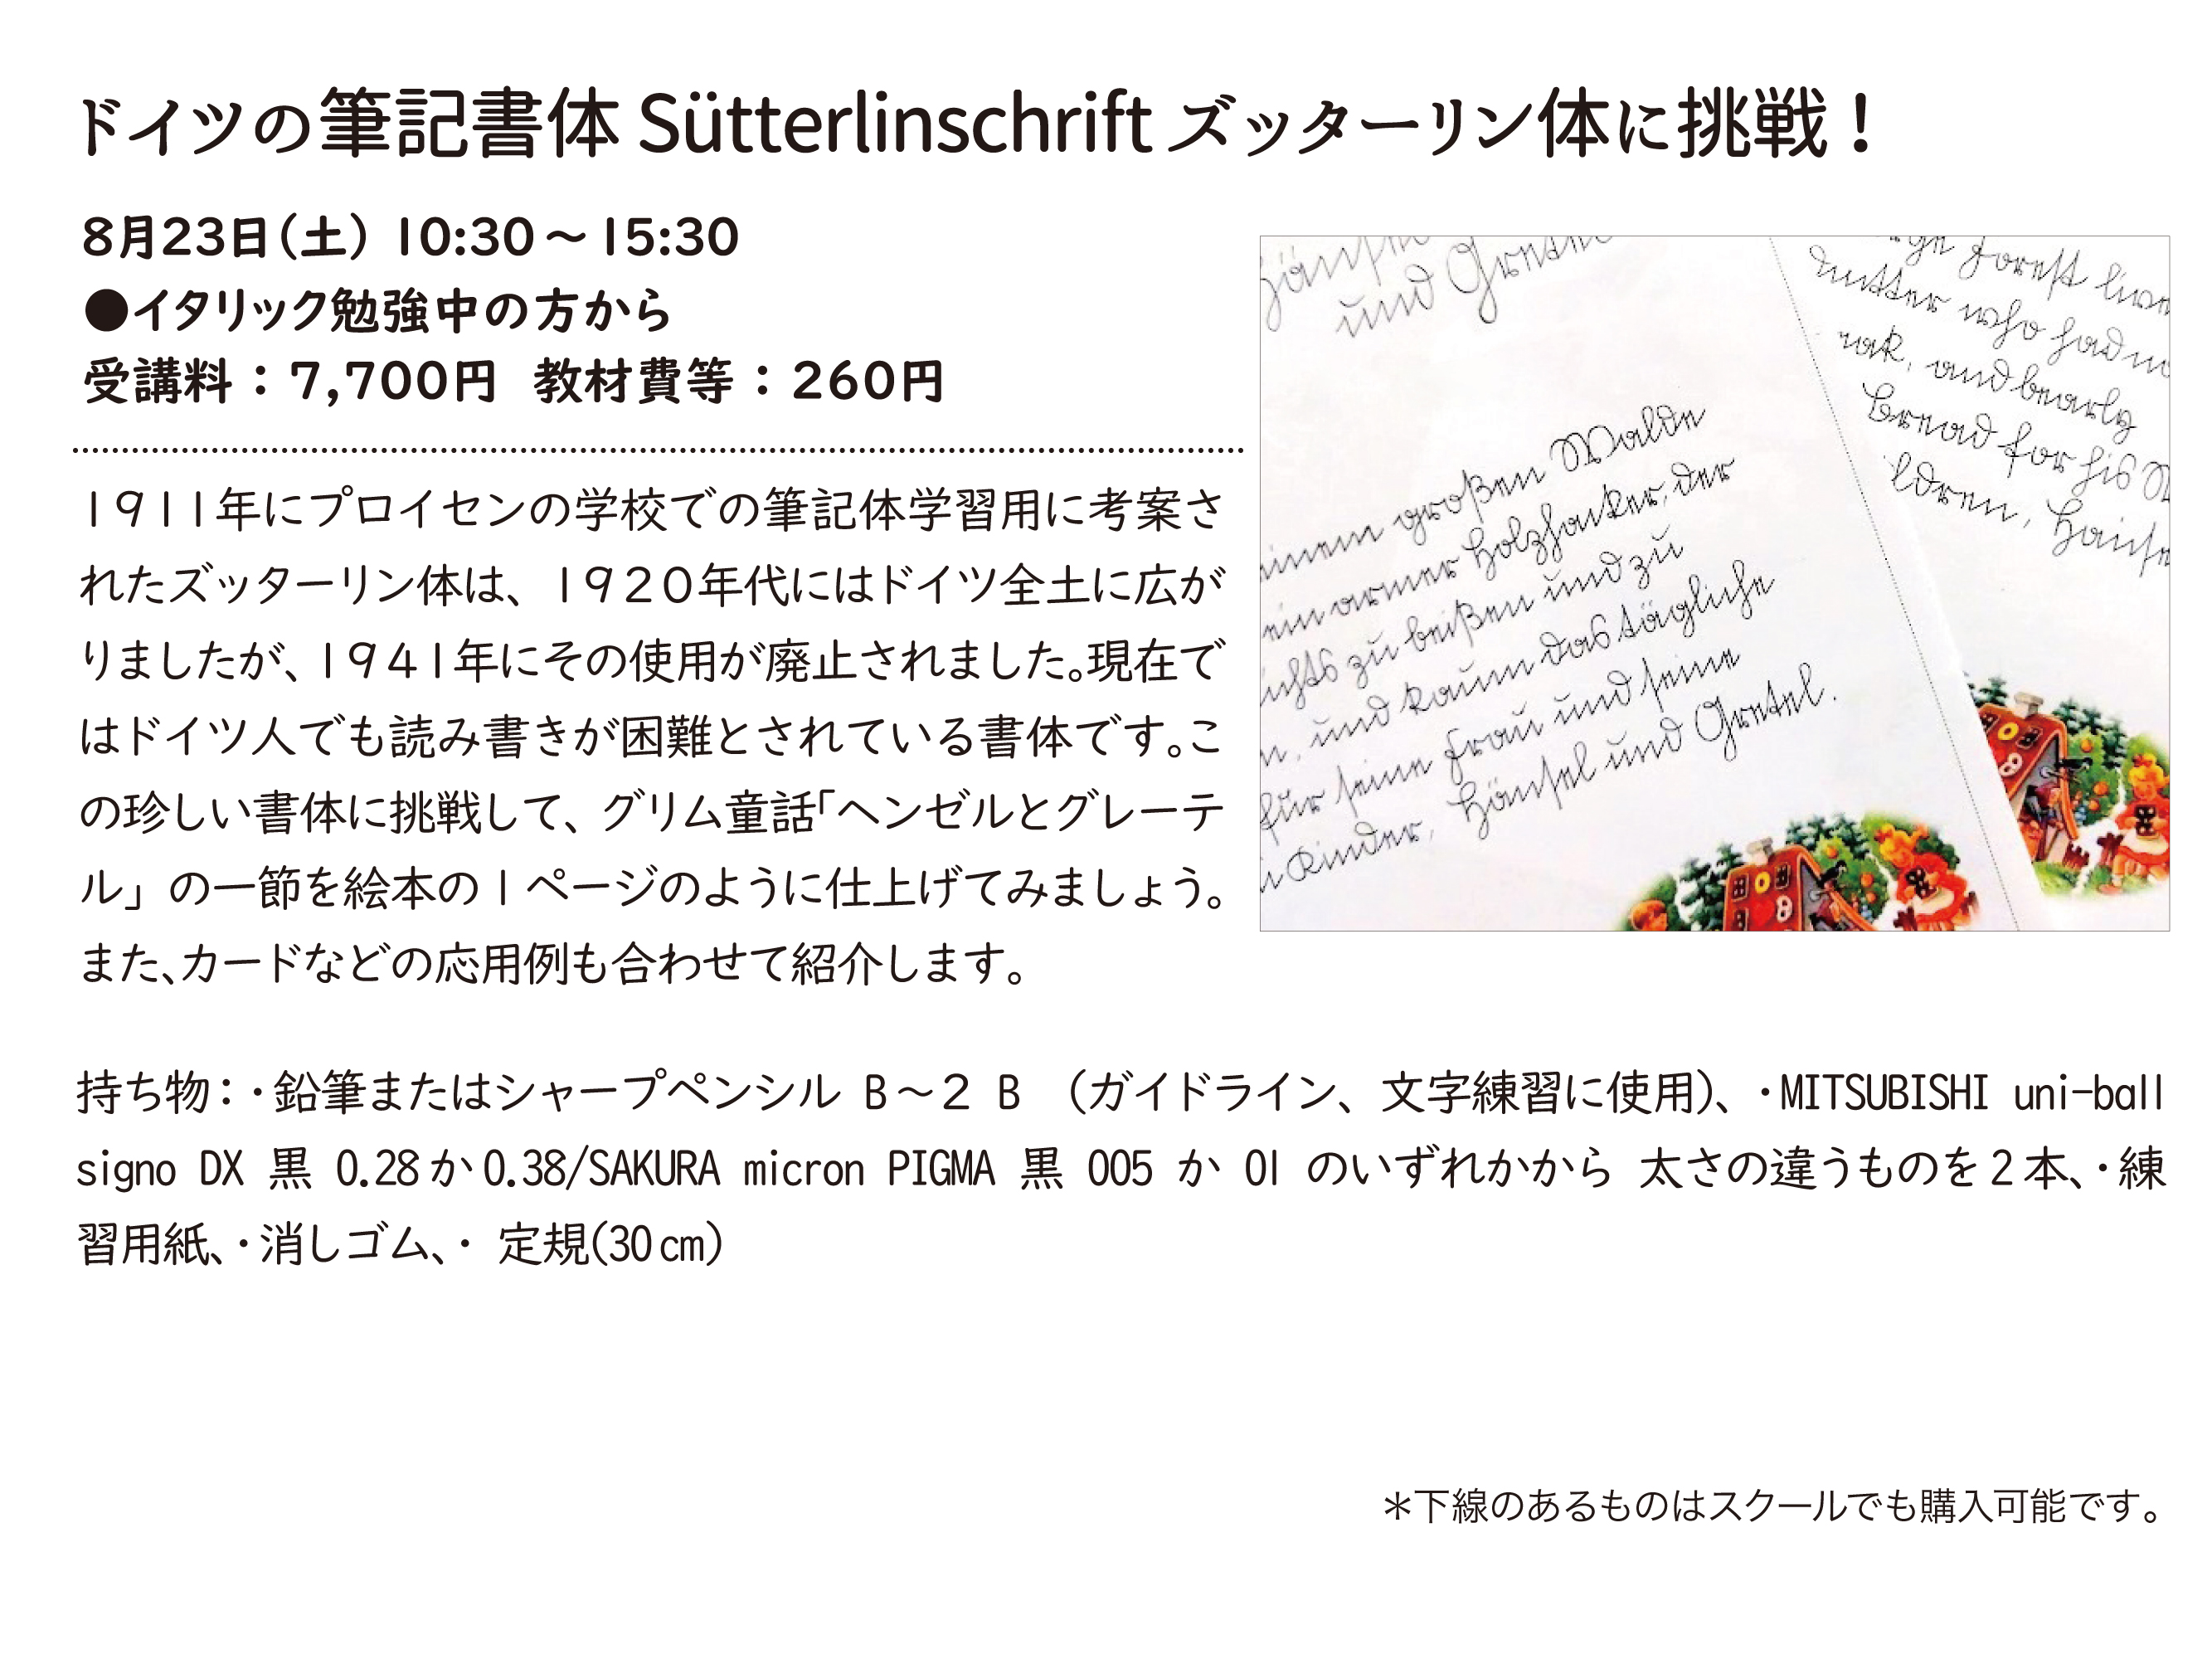 ドイツの筆記書体 Sütterlinschrift ズッターリン体に挑戦！
8月23日(土) 10:30～15:30
●イタリック勉強中の方から
受講料：7,700円 教材費等：260円
1911年にプロイセンの学校での筆記体学習用に考案さ
れたズッターリン体は、1920年代にはドイツ全土に広が
りましたが、1941年にその使用が廃止されました。現在で
はドイツ人でも読み書きが困難とされている書体です。こ
の珍しい書体に挑戦して、グリム童話「ヘンゼルとグレーテ
ル」の一節を絵本の1ページのように仕上げてみましょう。
また、カードなどの応用例も合わせて紹介します。
und Gretel
einem großen Walde
ein armer Holzhacker, der
nichts zu beißen und zu
, und kaum das tägliche
für seine Frau und seine
Kinder, Hänsel und Gretel.
forest live
mutter who had no
and bearly
bread for his
ldren, Hänse
持ち物：・鉛筆またはシャープペンシル B～2 B （ガイドライン、文字練習に使用）、・MITSUBISHI uni-ball
signo DX 黒 0.28か0.38/SAKURA micron PIGMA 黒 005 か 01 のいずれかから 太さの違うものを2本、・練
習用紙、・消しゴム、・ 定規(30cm)
＊下線のあるものはスクールでも購入可能です。